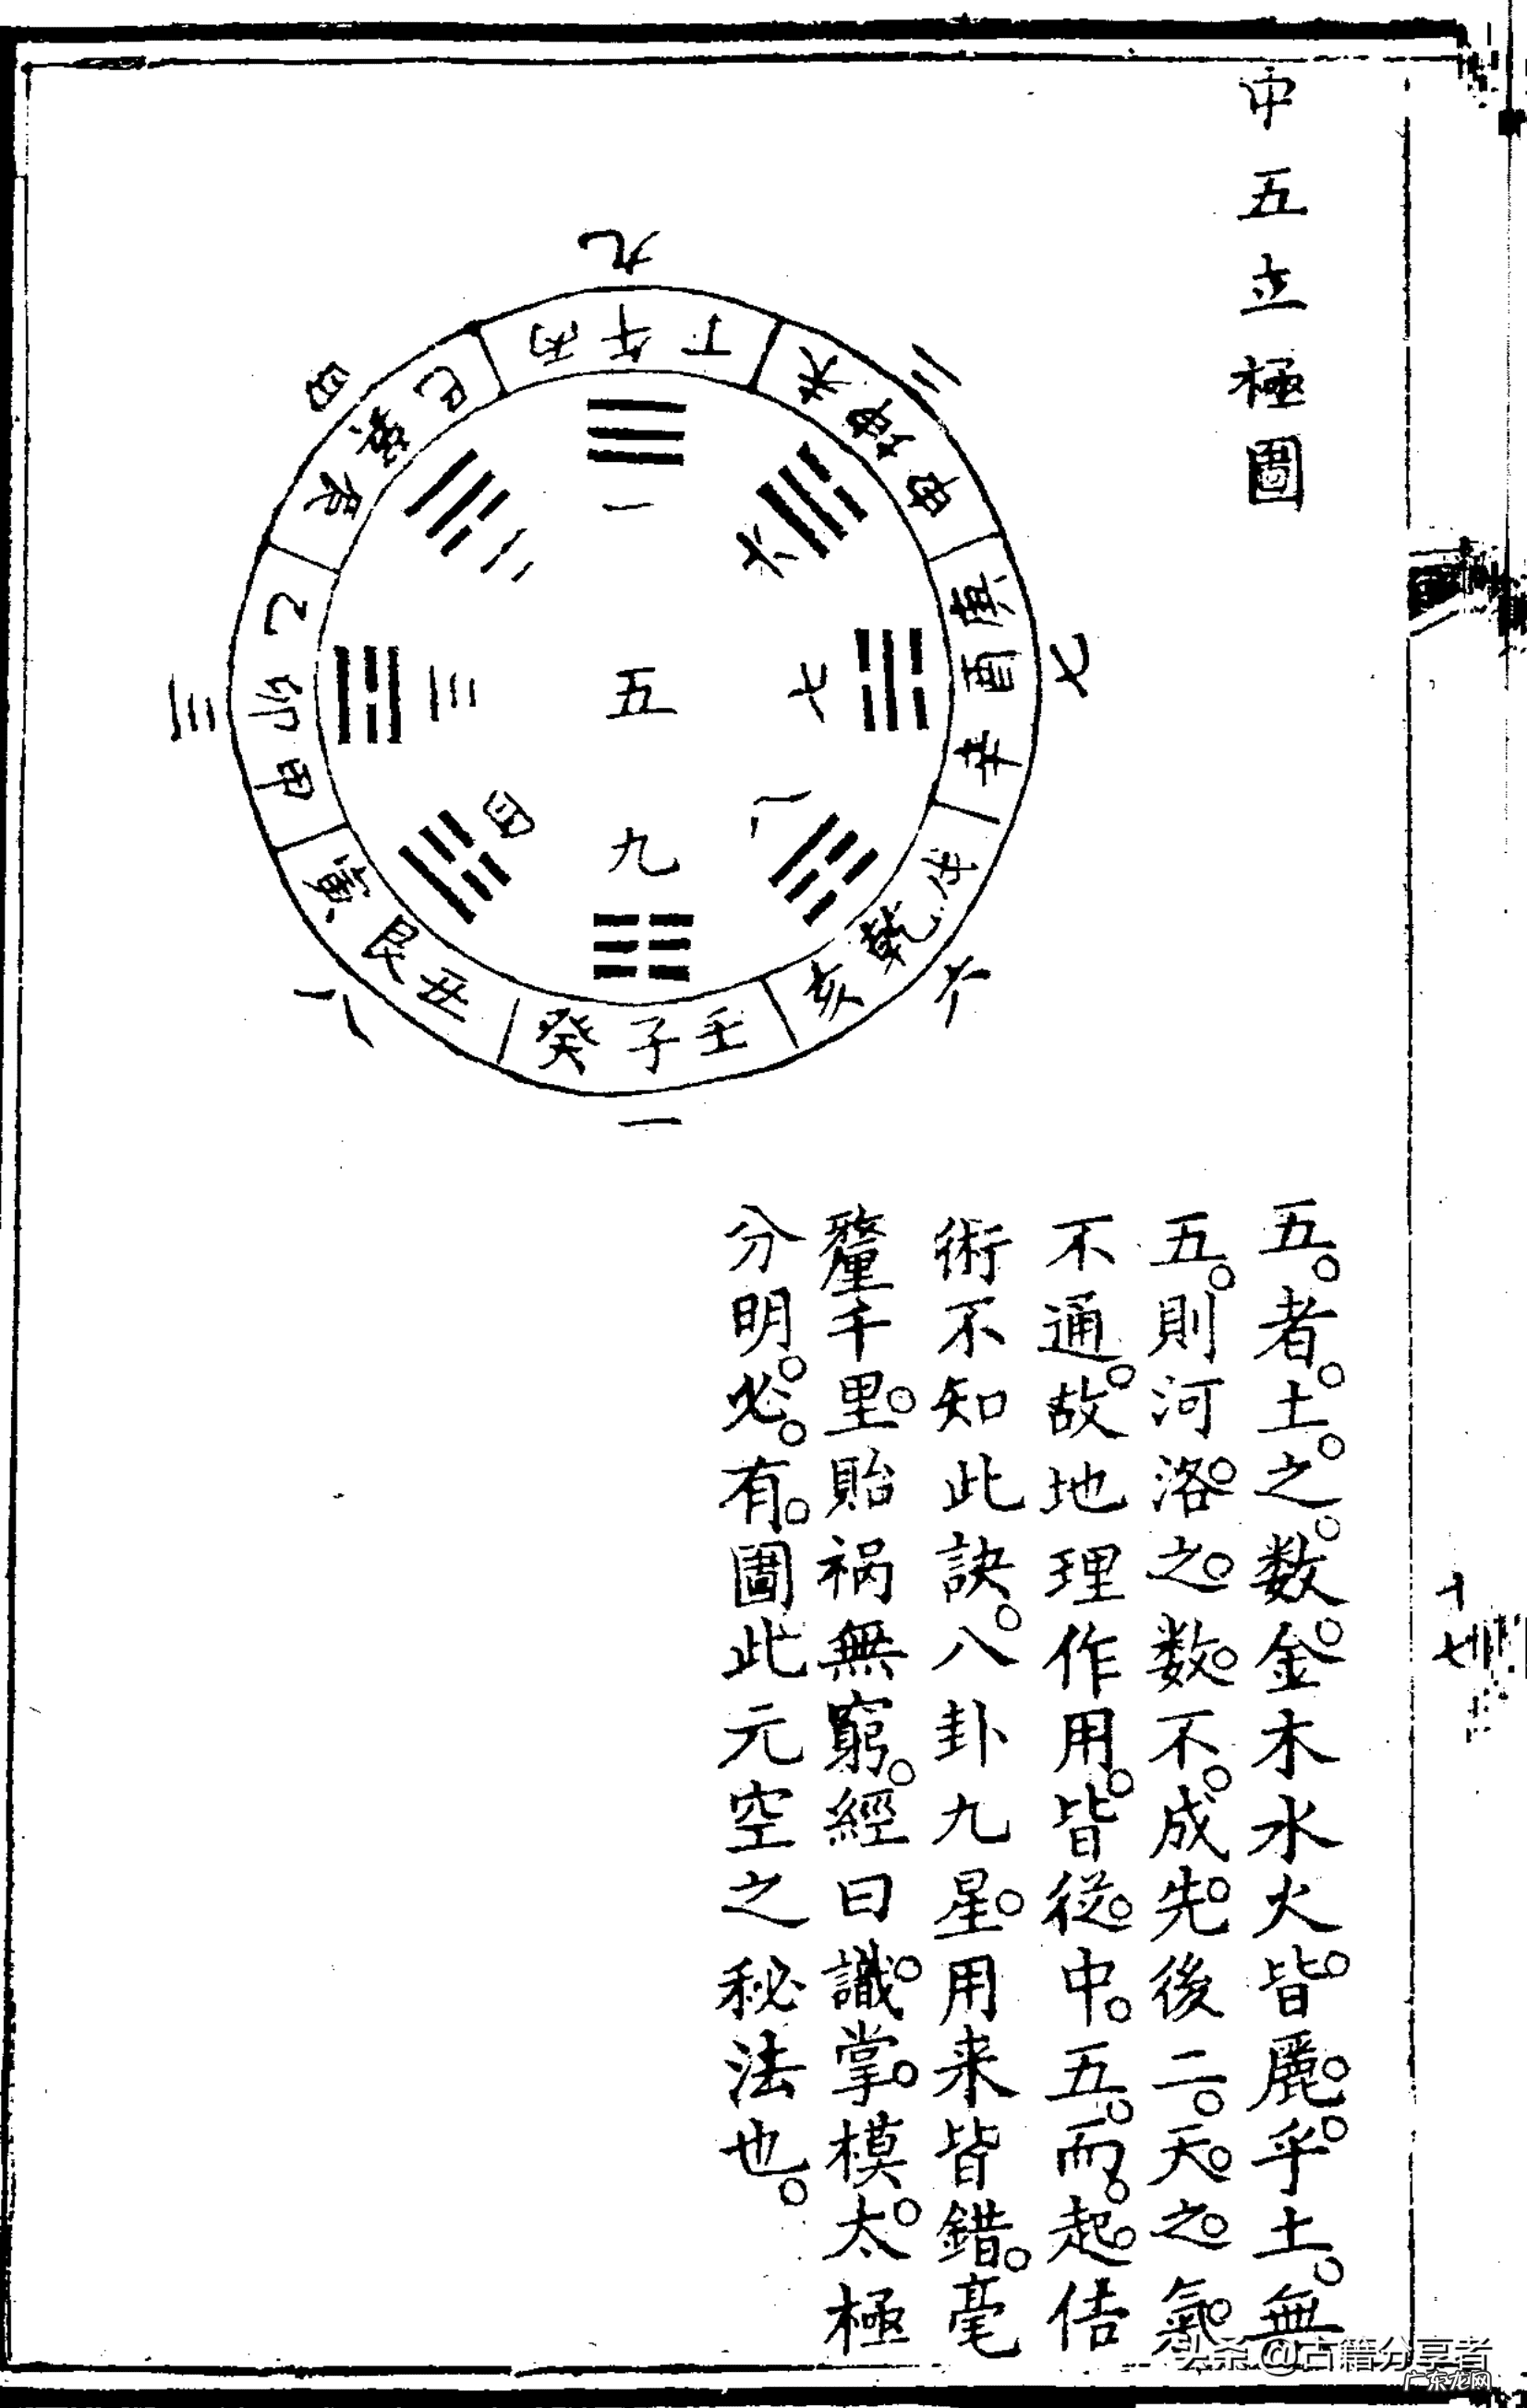 中五立極圖
九
二
七
六
一
八
三
四
丙午丁
未坤申
庚酉辛
戌乾亥
壬子癸
丑艮寅
甲卯乙
辰巽巳
一
六
七
八
九
四
三
二
五
五者土之数金木水火皆麗乎土無
五則河洛之数不成先後二天之氣
不通故地理作用皆從中五而起俈
術不知此訣八卦九星用来皆錯毫
釐千里貽祸無窮經曰識掌模太極
分明必有圖此元空之秘法也
十七
头条@古籍分享者
广东龙网